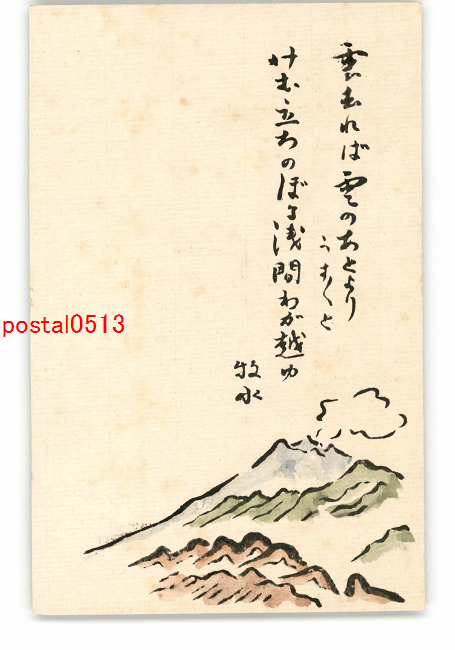 雲去れば雲のあとより
うす〱と
けむ立ちのぼる浅間わが越ゆ
牧水
postal0513